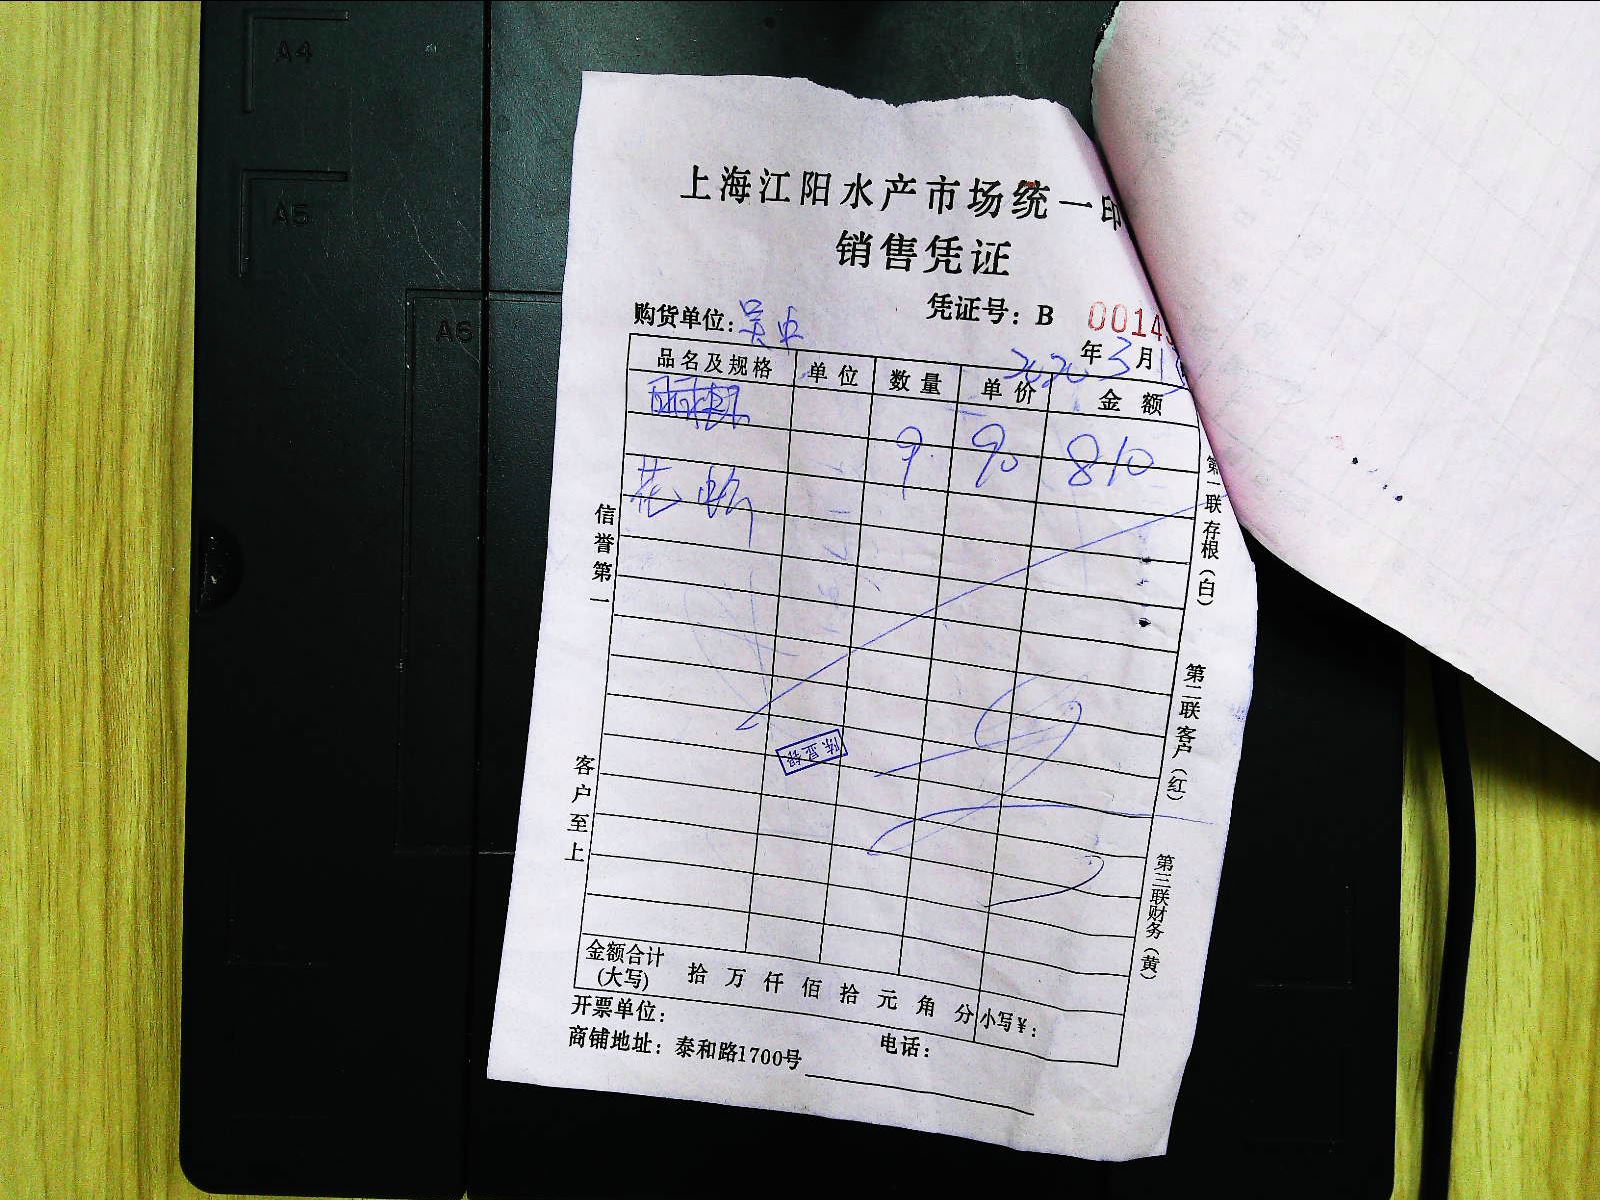 A4
A5
A6
上海江阳水产市场统一印
销售凭证
凭证号：B 0014
购货单位：吴中
2020年3月1
品名及规格 单位 数量 单价 金额
9 90 810
花蛤
信誉第一
客户至上
第一联存根（白）
第二联客户（红）
第三联财务（黄）
金额合计
(大写) 拾 万 仟 佰 拾 元 角 分 小写￥：
开票单位：
电话：
商铺地址：泰和路1700号